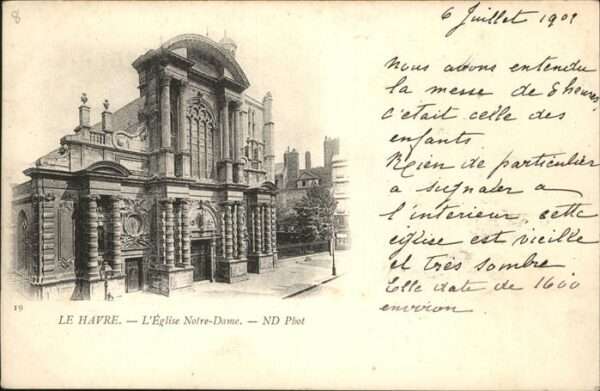 8
6 Juillet 1901
Nous avons entendu
la messe de 8 heures,
c'était celle des
enfants
Rien de particulier
a signaler a
l'interieur, cette
église est vieille
et très sombre
Elle date de 1600
environ
19
LE HAVRE. — L'Église Notre-Dame. — ND Phot